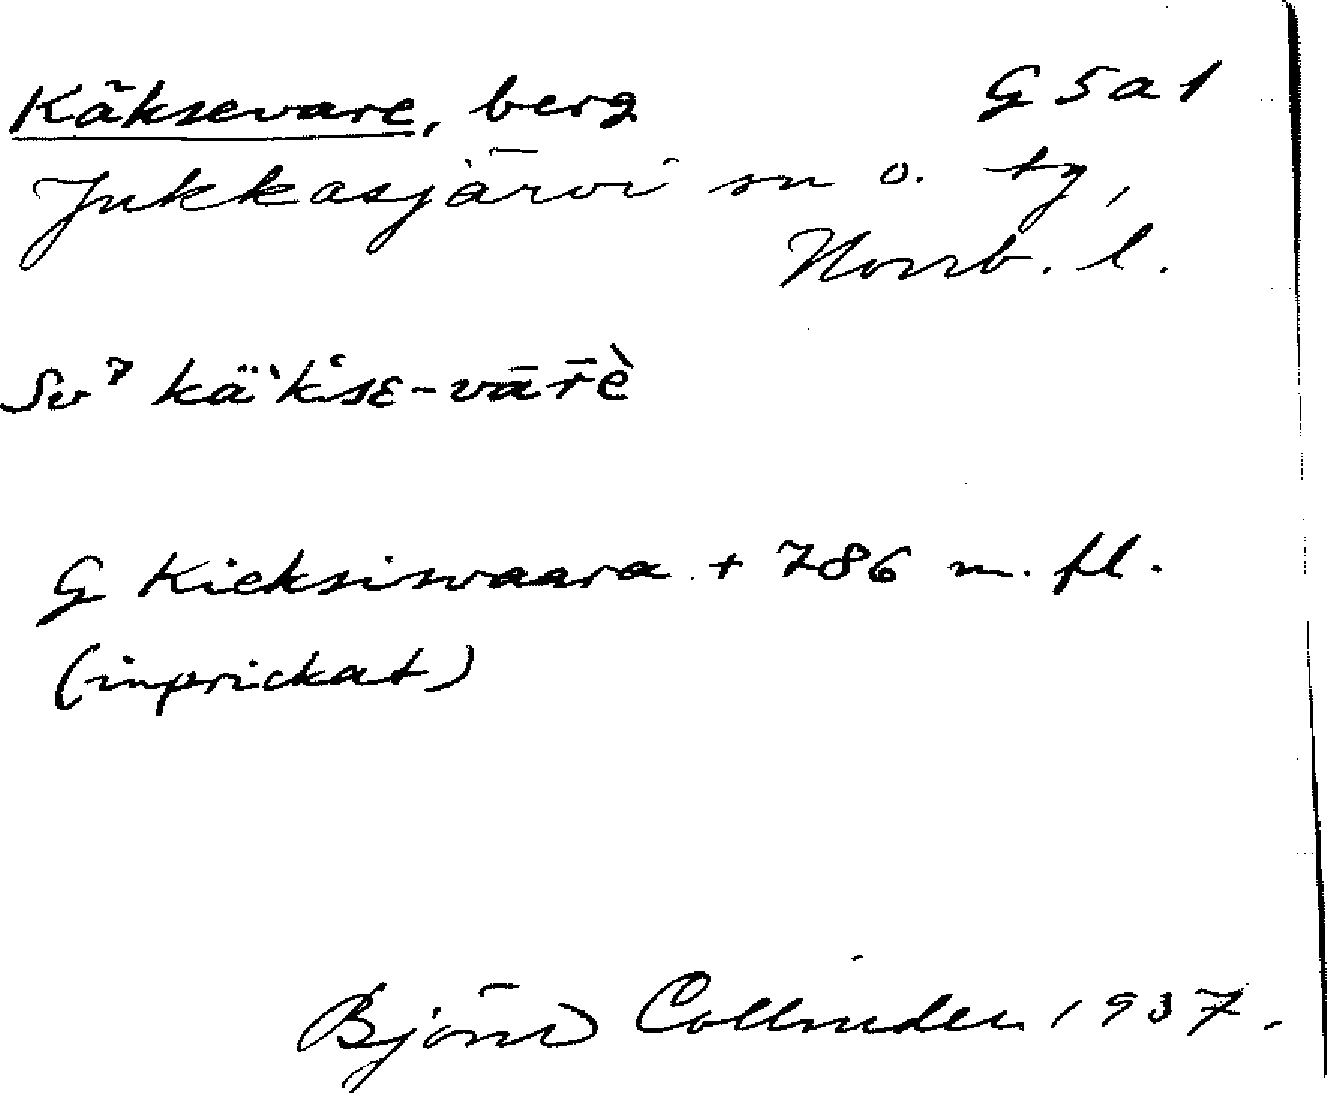 Käksevare, berg G 5 a 1
Jukkasjärvi sn o. tg,
Norrb. l.
Sv⁷ kä`k‘sɛ-vār̄ὲ
G Kieksisvaara + 786 m. fl.
(inprickat)
Björn Collinder 1937.